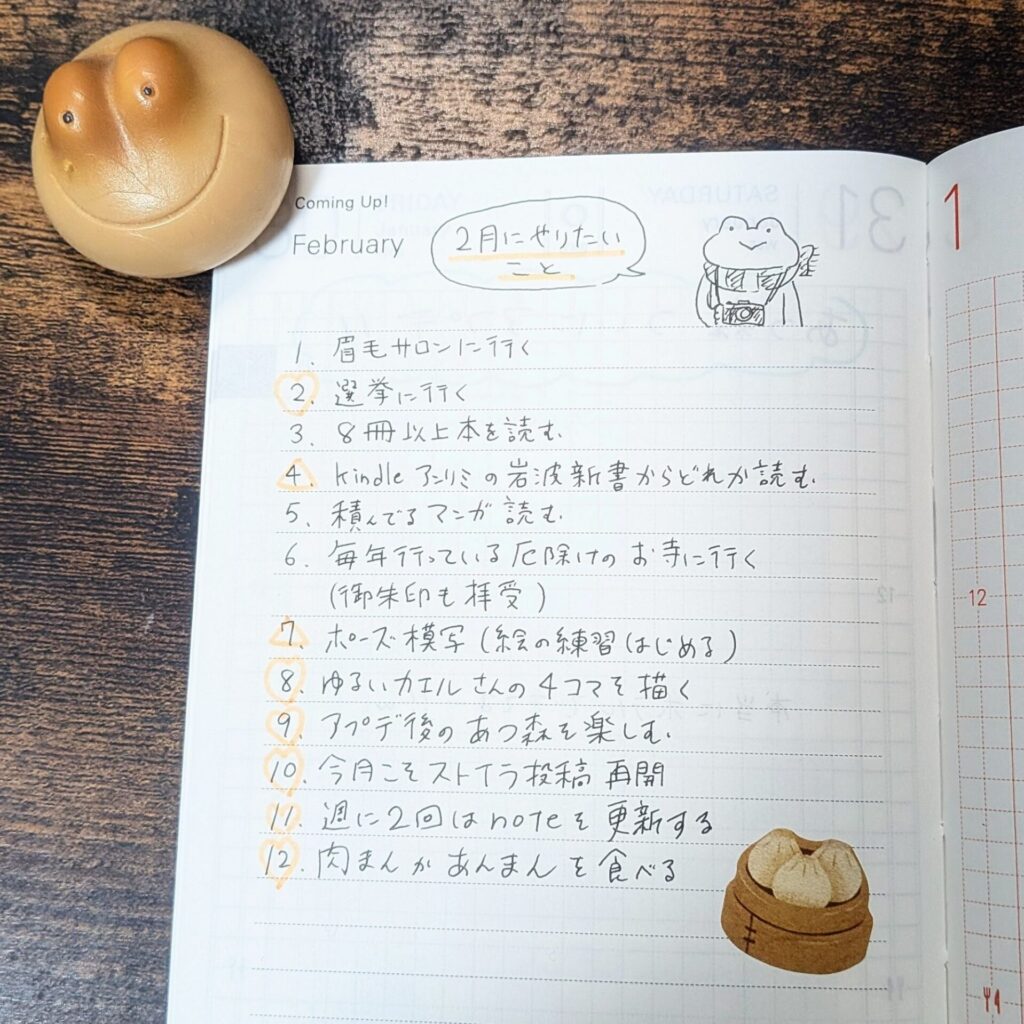 Coming Up!
February
2月にやりたい
こと
1. 眉毛サロンに行く
2. 選挙に行く
3. 8冊以上本を読む
4. kindleアンリミの岩波新書からどれか読む
5. 積んでるマンガ読む
6. 毎年行っている厄除けのお寺に行く
(御朱印も拝受)
7. ポーズ模写(絵の練習はじめる)
8. ゆるいカエルさんの4コマを描く
9. アプデ後のあつ森を楽しむ
10. 今月こそストイラ投稿再開
11. 週に2回はnoteを更新する
12. 肉まんかあんまんを食べる
1
12